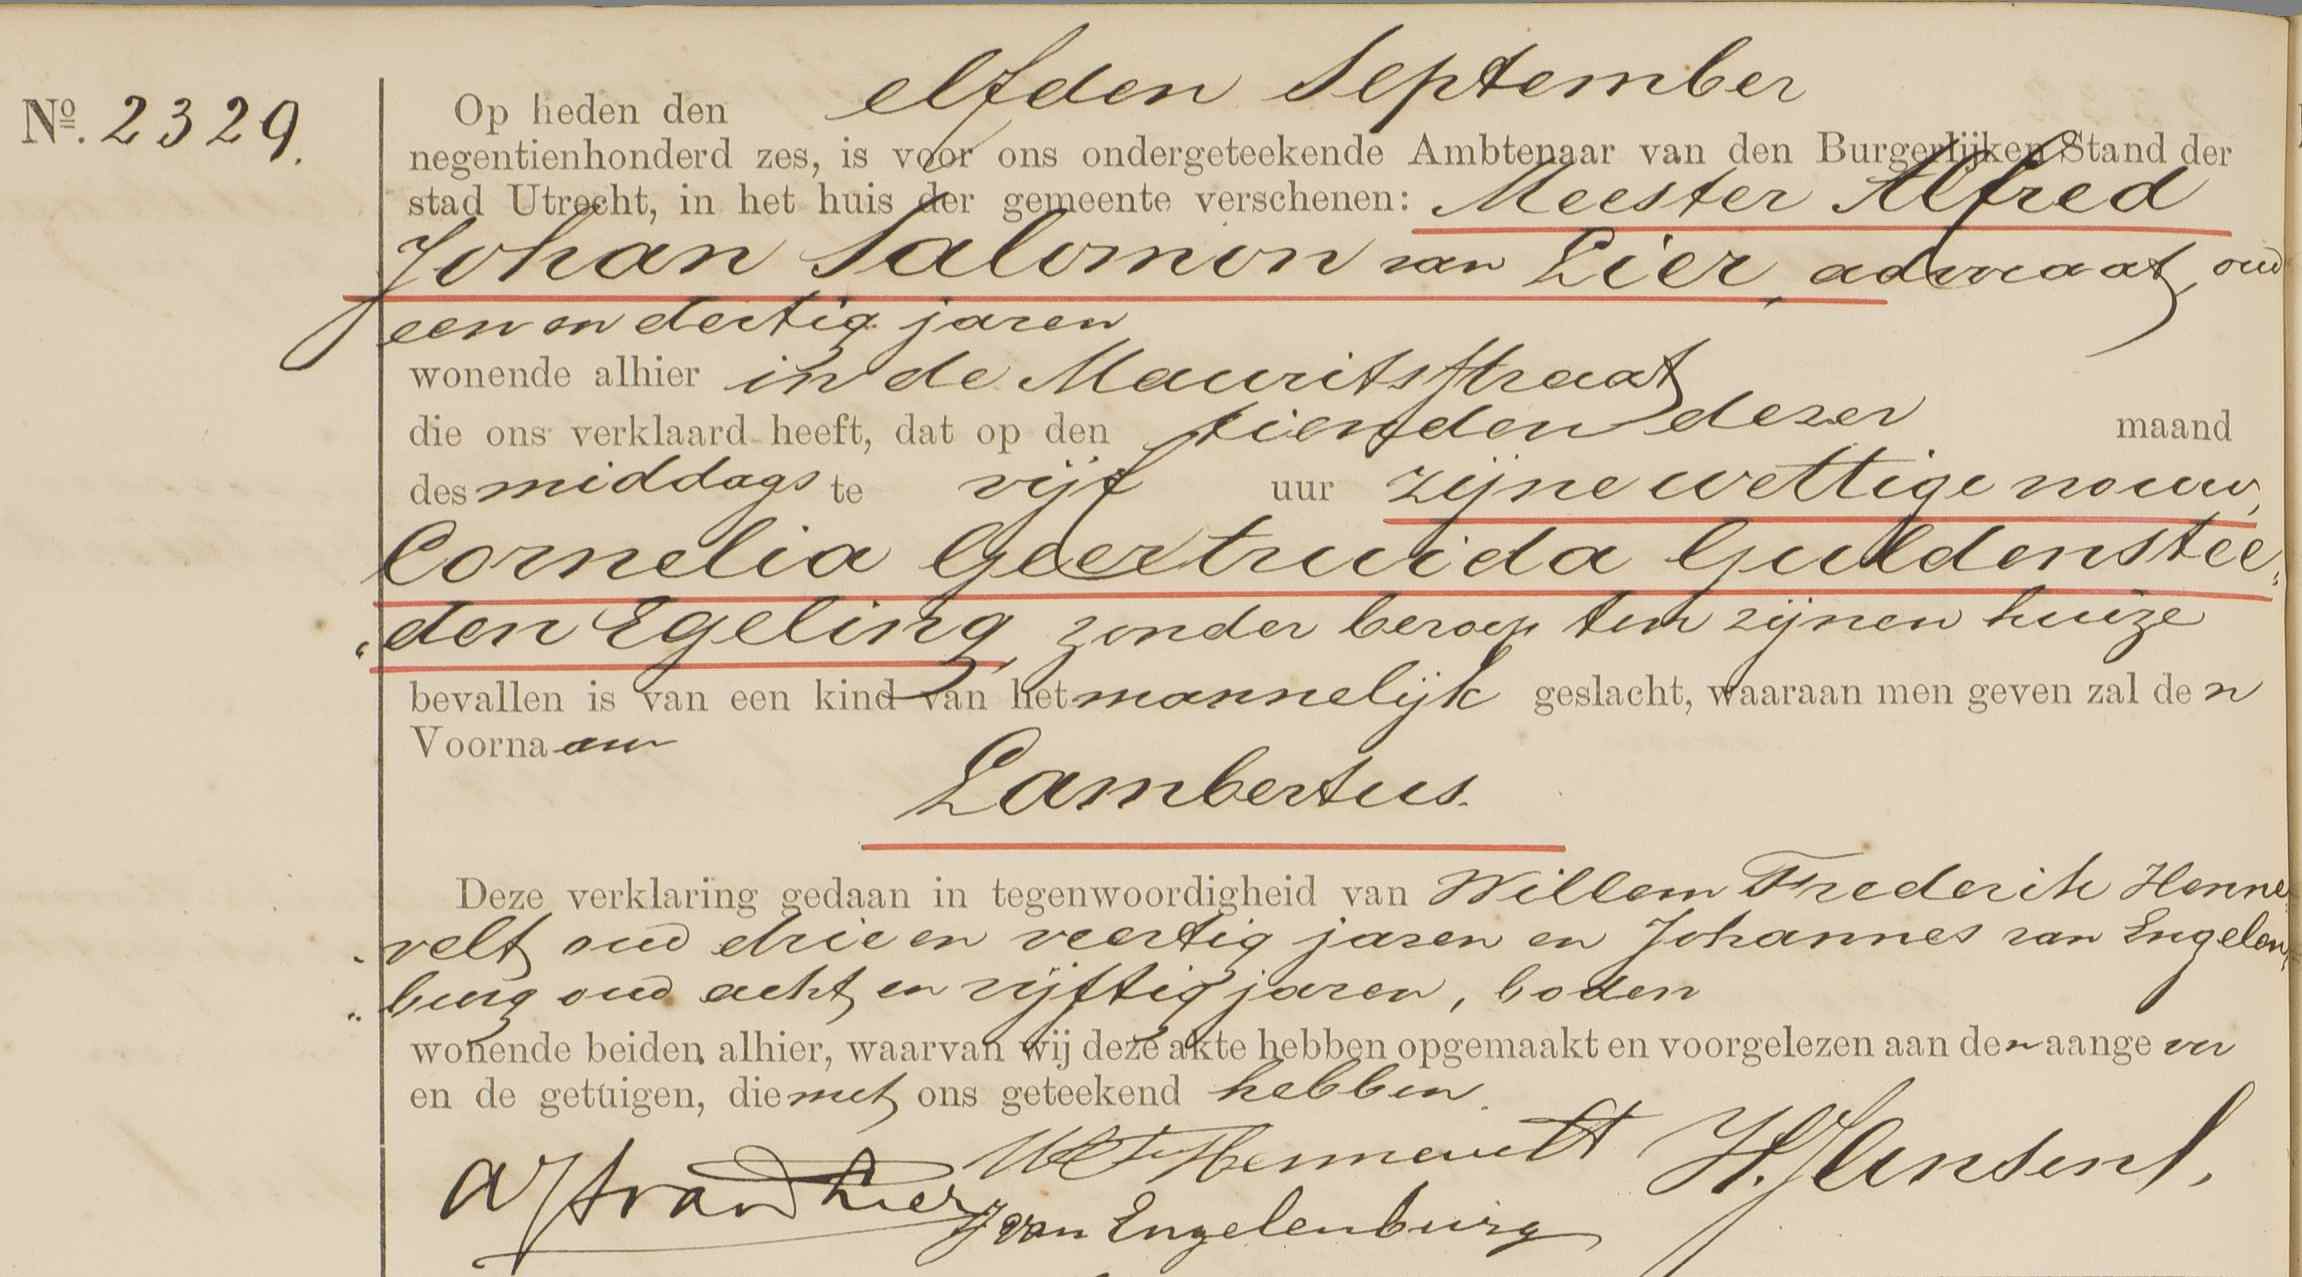 Nº. 2329.
Op heden den elfden September
negentienhonderd zes, is voor ons ondergeteekende Ambtenaar van den Burgerlijken Stand der
stad Utrecht, in het huis der gemeente verschenen: Meester Alfred
Johan Salomon van Lier, advocaat, oud
een en dertig jaren
wonende alhier in de Mauritsstraat
die ons verklaard heeft, dat op den tienden dezer maand
des middags te vijf uur zijne wettige vrouw,
Cornelia Geertruida Guldenstee„
„den Egeling, zonder beroep ten zijnen huize
bevallen is van een kind van het mannelijk geslacht, waaraan men geven zal den
Voornaam
Lambertus.
Deze verklaring gedaan in tegenwoordigheid van Willem Frederik Henne„
„velt oud drie en veertig jaren en Johannes van Engelen„
„burg oud acht en vijftig jaren, boden
wonende beiden alhier, waarvan wij deze akte hebben opgemaakt en voorgelezen aan den aangever
en de getuigen, die met ons geteekend hebben.
AJS van Lier WF Hennevelt H. Jansen
J van Engelenburg